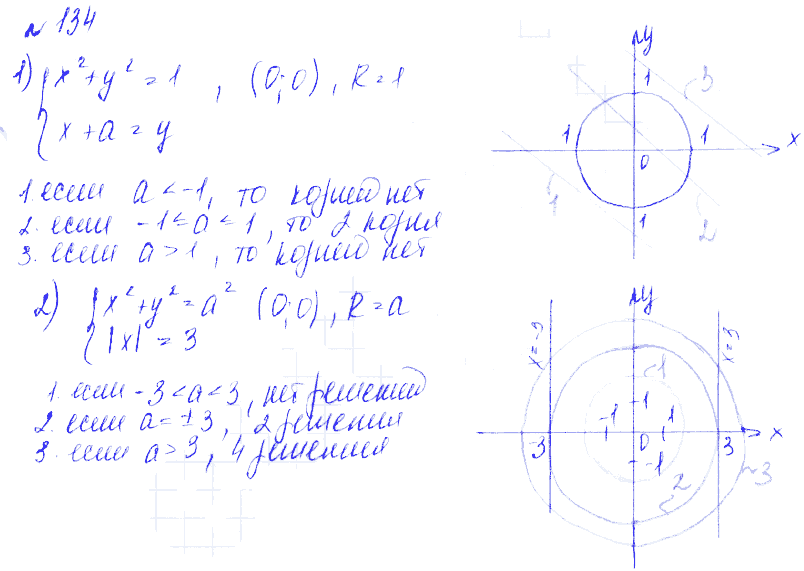 № 134
1) { x² + y² = 1 , (0;0), R = 1
{ x + a = y
1. если a < -1, то корней нет
2. если -1 ≤ a ≤ 1, то 2 корня
3. если a > 1, то корней нет
2) { x² + y² = a² (0;0), R = a
{ |x| = 3
1. если -3 < a < 3, нет решений
2. если a = ±3, 2 решения
3. если a > 3, 4 решения
y
1
3
1 1 x
0
1
1
2
y
x=-3 x=3
1
1
-1 1
3 0 3 x
-1
3
2